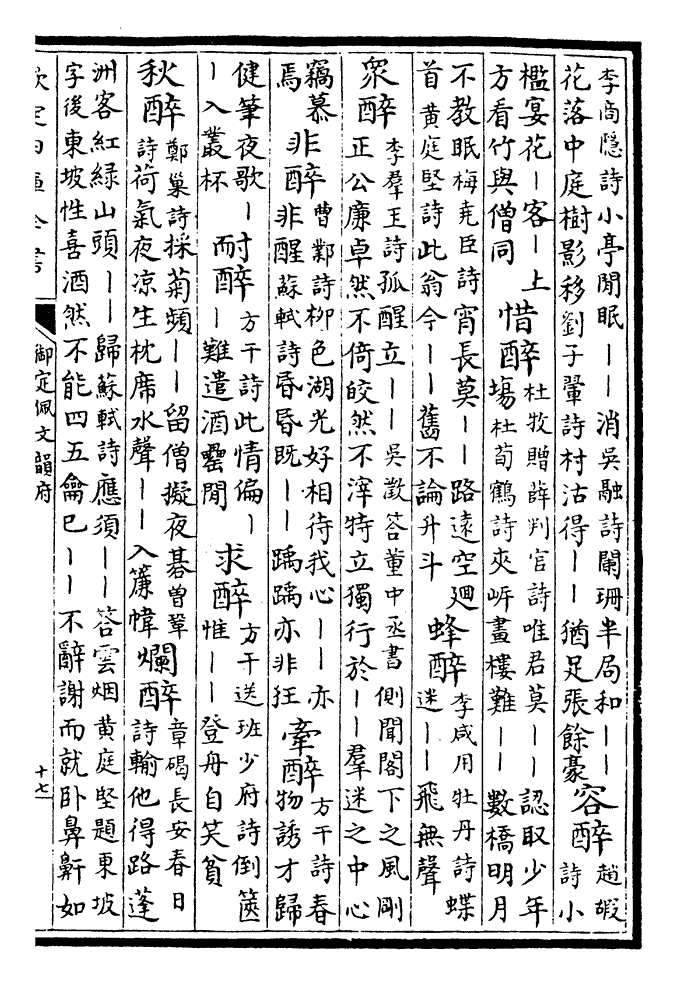 李商隱詩小亭閒眠――消吳融詩闌珊半局和――
花落中庭樹影移劉子翬詩村沽得――猶足張餘豪
容醉
趙嘏
詩小
檻宴花―客―上
方看竹與僧同
惜醉
杜牧贈薛判官詩唯君莫――認取少年
塲杜荀鶴詩夾岍畫樓難――數橋明月
不教眠梅堯臣詩宵長莫――路遠空廻
首黃庭堅詩此翁今――舊不論升斗
蜂醉
李咸用牡丹詩蝶
迷――飛無聲
衆醉
李羣玉詩孤醒立――吳澂答董中丞書側聞閣下之風剛
正公廉卓然不倚皎然不滓特立獨行於――羣迷之中心
竊慕
焉
非醉
曹鄴詩柳色湖光好相待我心――亦
非醒蘇軾詩昏昏既――踽踽亦非狂
牽醉
方干詩春
物誘才歸
健筆夜歌―
―入叢杯
耐醉
方干詩此情偏―
―難遣酒罍閒
求醉
方干送班少府詩倒篋
惟――登舟自笑貧
秋醉
鄭巢詩採菊頻――留僧擬夜碁曾鞏
詩荷氣夜凉生枕席水聲――入簾幃
爛醉
章碣長安春日
詩輸他得路蓬
洲客紅綠山頭――歸蘇軾詩應須――答雲烟黃庭堅題東坡
字後東坡性喜酒然不能四五龠已――不辭謝而就卧鼻鼾如
欽定四庫全書
御定佩文韻府
十七